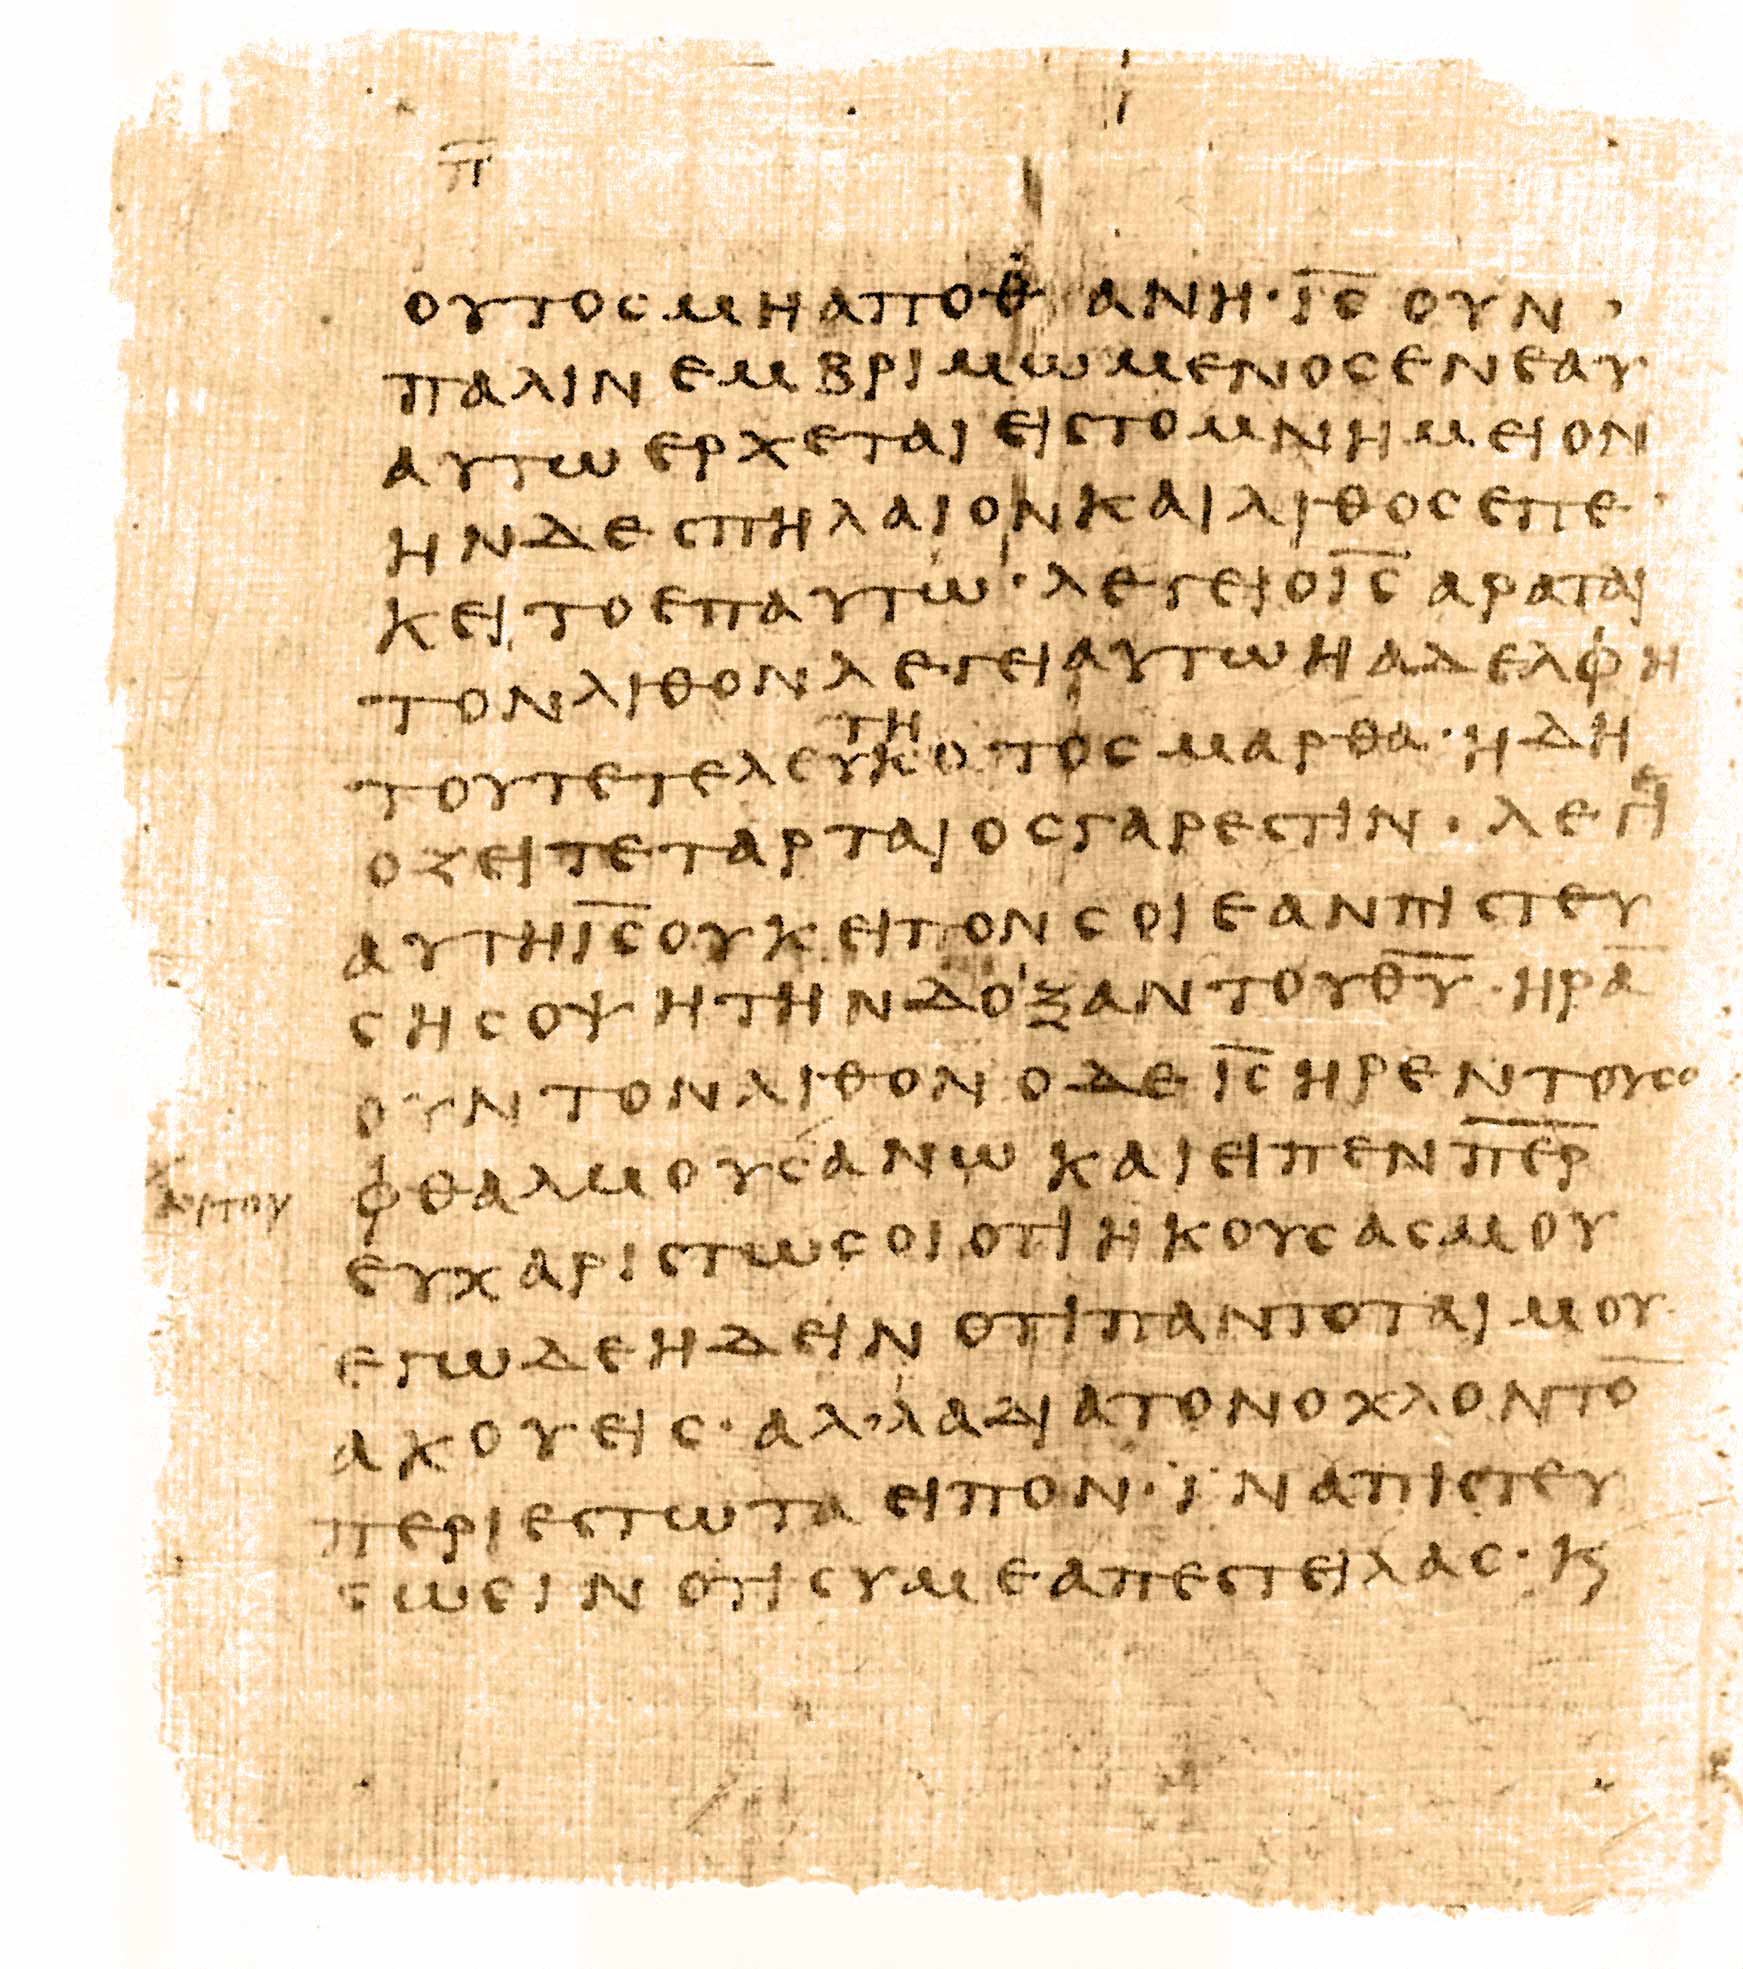 π̅
ουτοςμηαποθανη· ι̅ς̅ ουν
παλινεμβριμωμενοςενεαυ
αυτωερχεταιειςτομνημειον
ηνδεςπηλαιονκαιλιθοςεπε
κειτοεπαυτω· λεγειοι̅ς̅αραται
τονλιθονλεγειαυτωηαδελφη
τουτετελευ\τη/κοτοςμαρθα· ηδη
οζειτεταρταιοςγαρεςτιν· λεγ\ε/ι
αυτηι̅ς̅ουκειπονςοιεανπιςτευ
ςηςοψητηνδοξαντουθ̅υ̅· ηρα̅
ουντονλιθονοδει̅ς̅ηρεντουςο
φθαλμουςανωκαιειπενπ̅ε̅ρ̅
ευχαριςτωςοιοτιηκουςαςμου
εγωδεηδεινοτιπαντοταιμου
ακουεις· αλ’λαδιατονοχλοντο̅
περιεςτωταειπον· ϊναπιςτευ
ςωςινοτιςυμεαπεςτειλας· κϛ